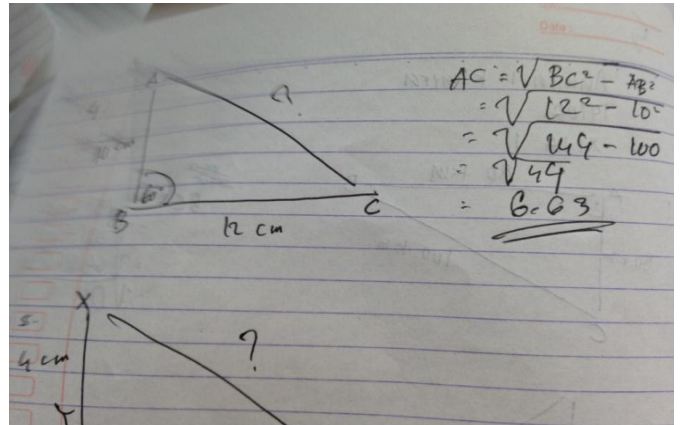 A
?
10 cm
60°
B
12 cm
C
AC = √BC² - AB²
= √12² - 10²
= √144 - 100
= √44
= 6.63
X
5-
?
4 cm
Y